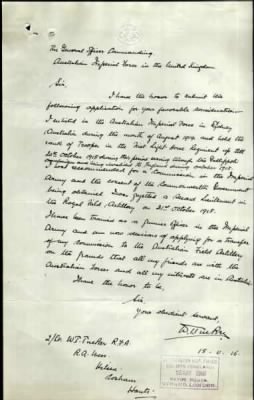 The General Officer Commanding
Australian Imperial Force in the United Kingdom
Sir,
I have the honor to submit the
following application for your favorable consideration
I enlisted in the Australian Imperial Force in Sydney
Australia during the month of August 1914 and held the
rank of Trooper in the First Light Horse Regiment up till
20th October 1915 during this period serving through the Gallipoli
and being invalided to England during
I was recommended for a Commission in the Imperial
Army and the consent of the Commonwealth Government
being obtained was gazetted a Second Lieutenant in
the Royal Field Artillery on 21st October 1915.
I have been trained as a gunner officer in the Imperial
Army and am now desirous of applying for a transfer
of my commission to the Australian Field Artillery
on the grounds that all my friends are with the
Australian Forces and all my interests are in Australia
I have the honor to be,
Sir,
Your obedient servant,
15 16
2/Lt W.T. Tucker R.F.A.
R.A. Mess.
Hilsea
Cosham
Hants.